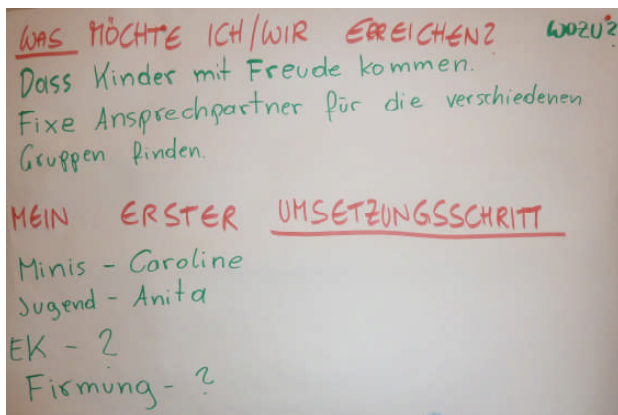 WAS MÖCHTE ICH/WIR ERREICHEN? WOZU?
Dass Kinder mit Freude kommen.
Fixe Ansprechpartner für die verschiedenen
Gruppen finden.
MEIN ERSTER UMSETZUNGSSCHRITT
Minis - Caroline
Jugend - Anita
EK - ?
Firmung - ?